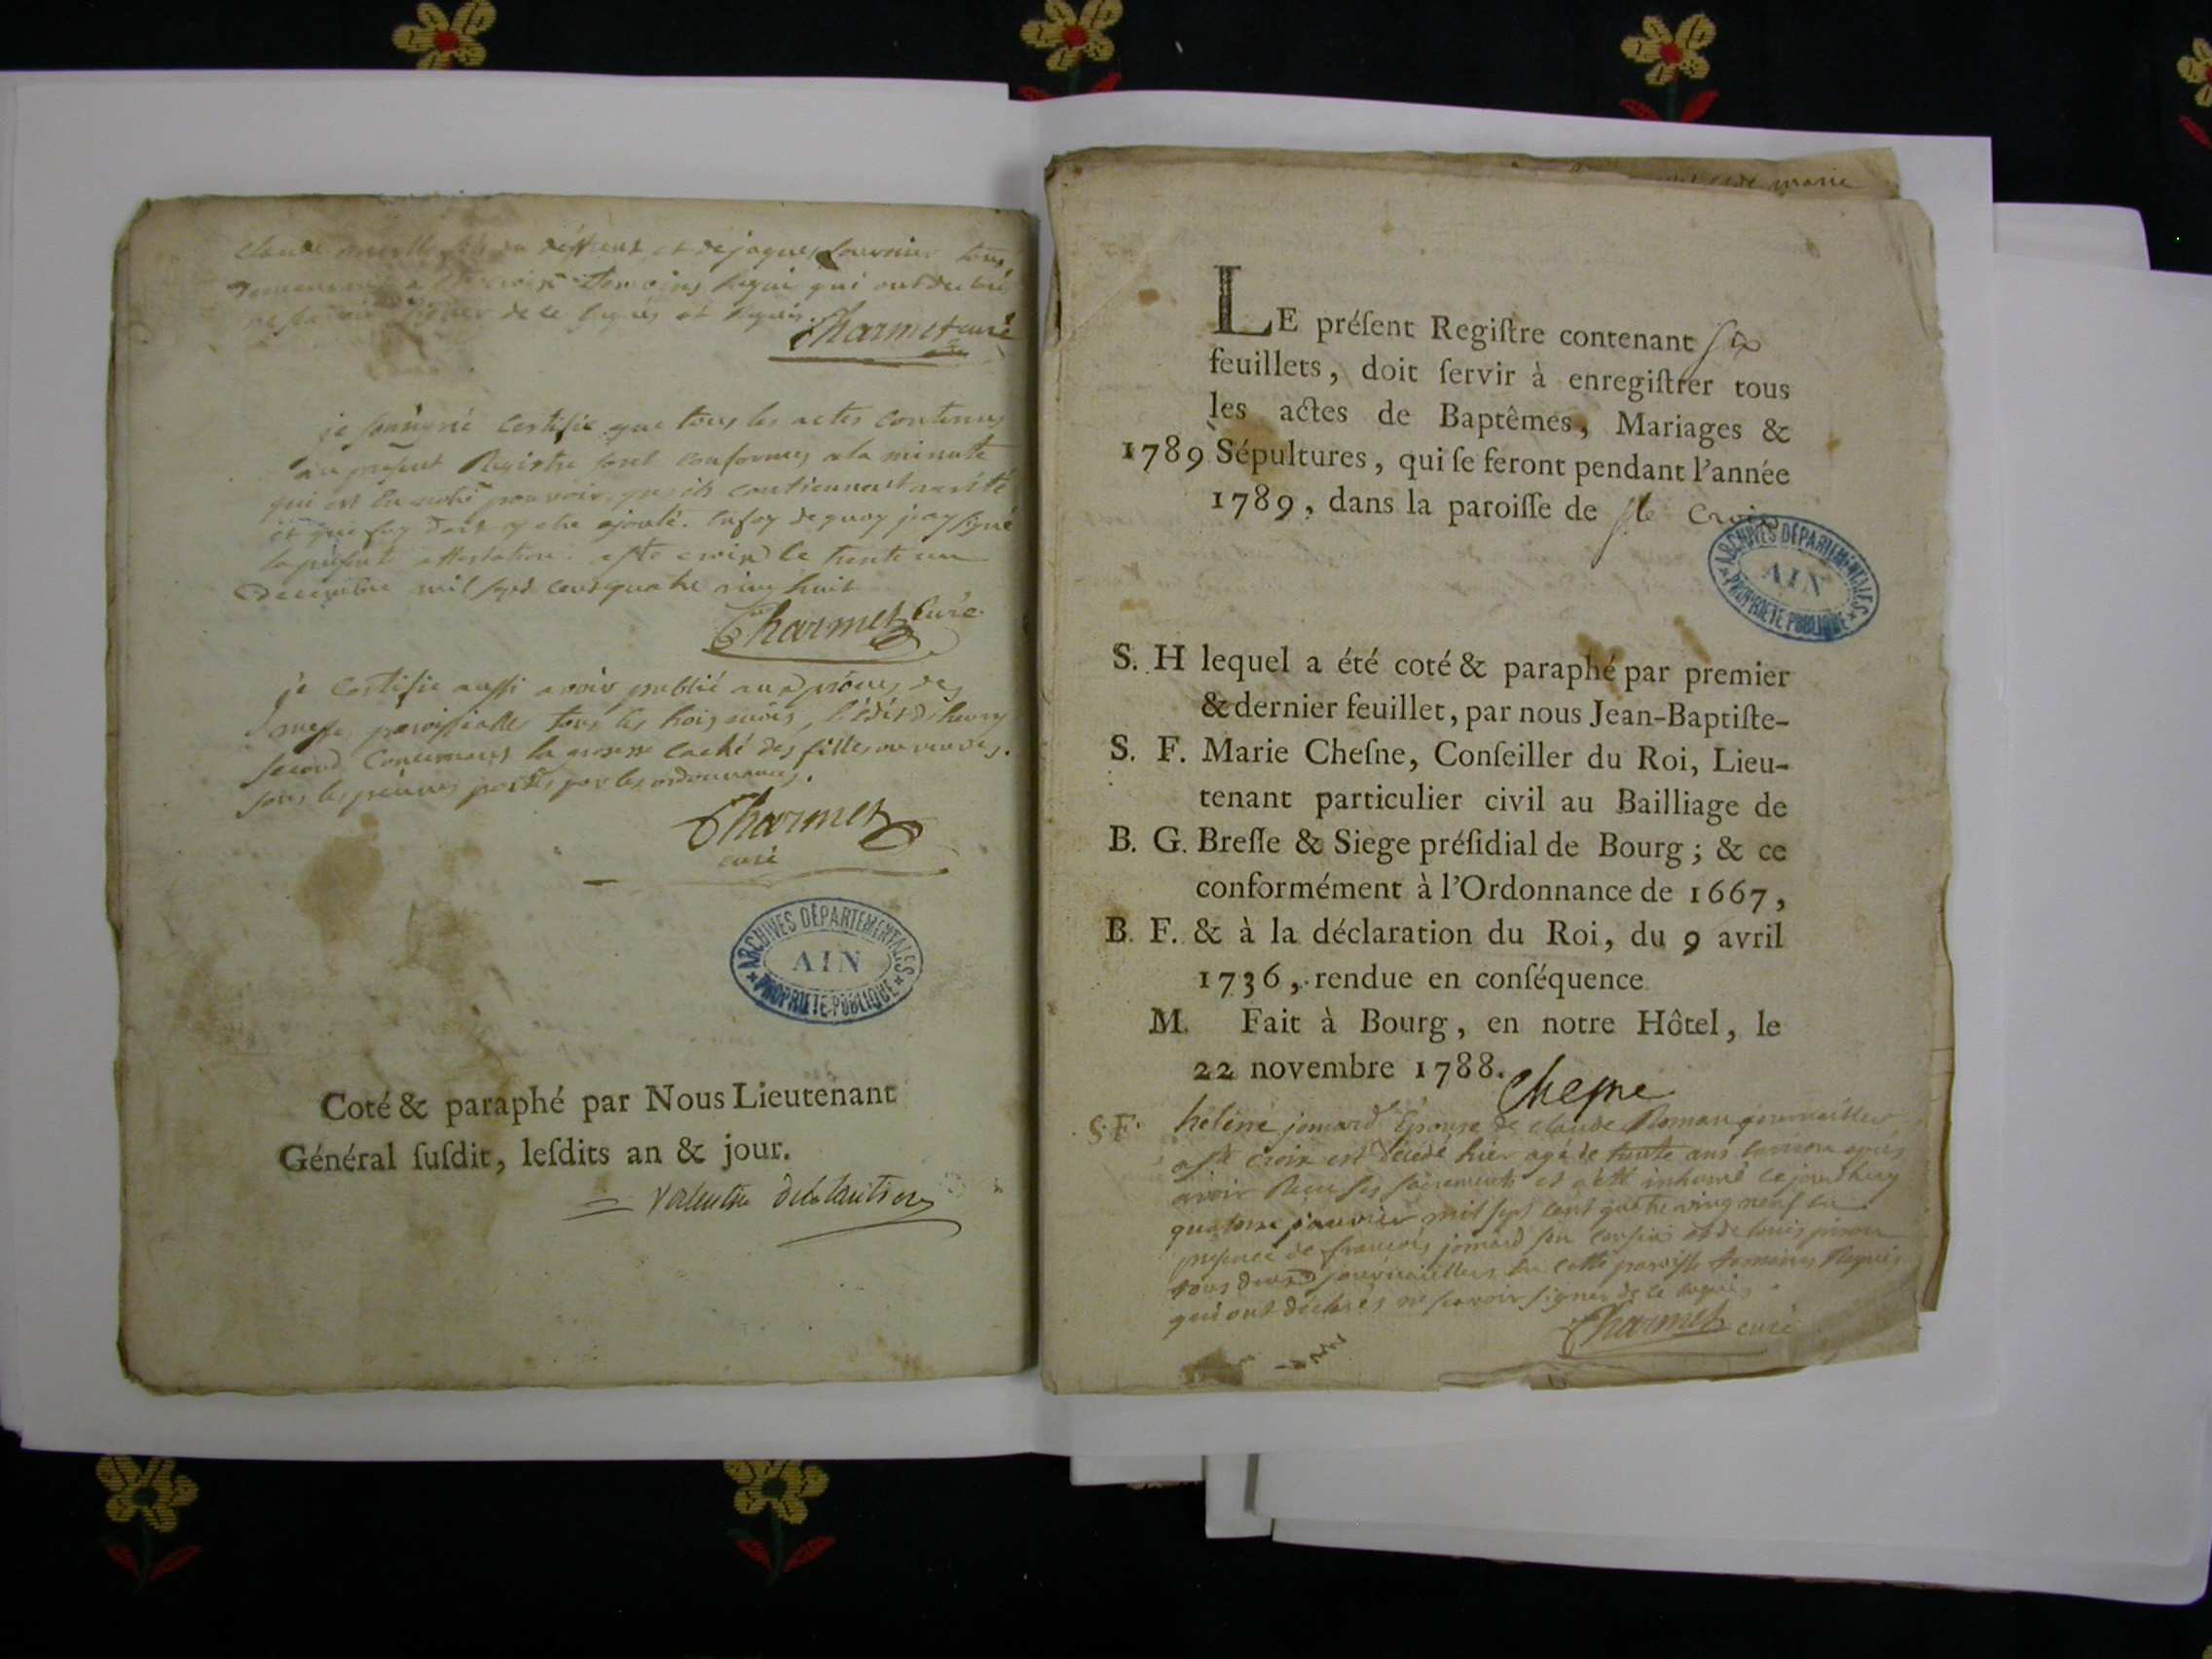 et de jaques fournier tous
temoins requis qui ont declaré
de ce requis et requis.
Charmet curé
je soussigné certifie que tous les actes contenus
au present Registre sont conformes a la minute
qui est en notre pouvoir, qu'ils contiennent verité
et que foy doit y etre ajouté. en foy de quoy j'ay signé
la presente attestation. a ste croix le trente un
decembre mil sept cent quatre ving huit
Charmet Curé
je certifie aussi avoir publié aux prônes des
messes paroissialles tous les trois mois, l'édit d'henry
second concernant la grossesse caché des filles ou veuves.
sous les peines portés par les ordonnances.
Charmet
curé
ARCHIVES DÉPARTEMENTALES
AIN
PROPRIETE PUBLIQUE
Coté & paraphé par Nous Lieutenant
Général ſuſdit, leſdits an & jour.
marie
LE préſent Regiſtre contenant six
feuillets, doit ſervir à enregiſtrer tous
les actes de Baptêmes, Mariages &
1789 Sépultures, qui ſe feront pendant l'année
1789, dans la paroiſſe de ste Croix
ARCHIVES DÉPARTEMENTALES
AIN
PROPRIETE PUBLIQUE
S. H lequel a été coté & paraphé par premier
& dernier feuillet, par nous Jean-Baptiſte-
S. F. Marie Cheſne, Conſeiller du Roi, Lieu-
tenant particulier civil au Bailliage de
B. G. Breſſe & Siege préſidial de Bourg; & ce
conformément à l'Ordonnance de 1667,
B. F. & à la déclaration du Roi, du 9 avril
1736, rendue en conſéquence
M. Fait à Bourg, en notre Hôtel, le
22 novembre 1788.
Chesne
S.F. hélène jomard Epouse de claude Roman journaillier
a ste croix est décédé hier agé de trente ans environ après
avoir Recu ses sacrements et a été inhumé ce jourd'huy
quatorze janvier mil sept cent quatre ving neuf en
presence de francois jomard son cousin et de louis
tous deux journailliers en cette paroisse temoins Requis
qui ont déclarés ne savoir signer de ce requis
Charmet curé